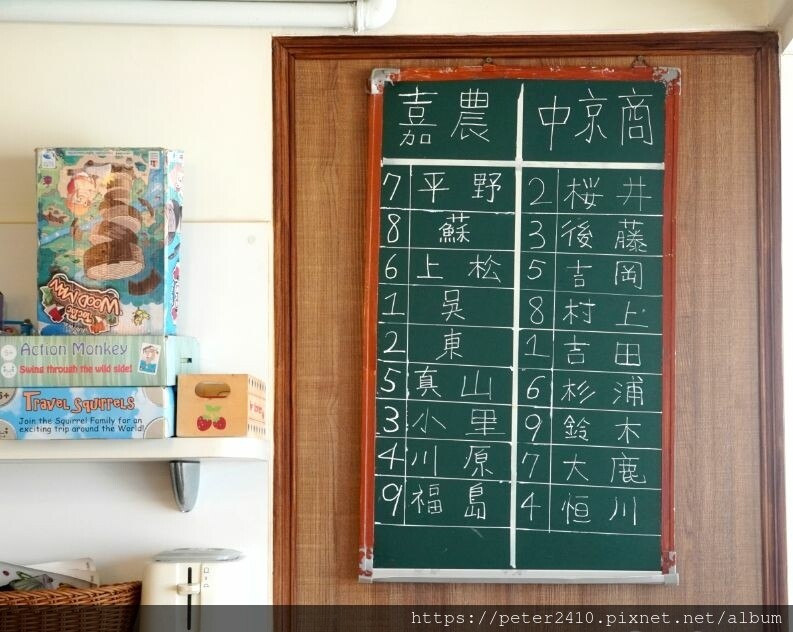 嘉農 中京商
7 平野 2 桜井
8 蘇 3 後藤
6 上松 5 吉岡
1 吳 8 村上
2 東 1 吉田
5 真山 6 杉浦
3 小里 9 鈴木
4 川原 7 大鹿
9 福島 4 恒川
Tactic WOOD MAN
Action Monkey
Swing through the wild side!
Travel Squirrels
Join the Squirrel Family for an
exciting trip around the World!
https://peter2410.pixnet.net/album